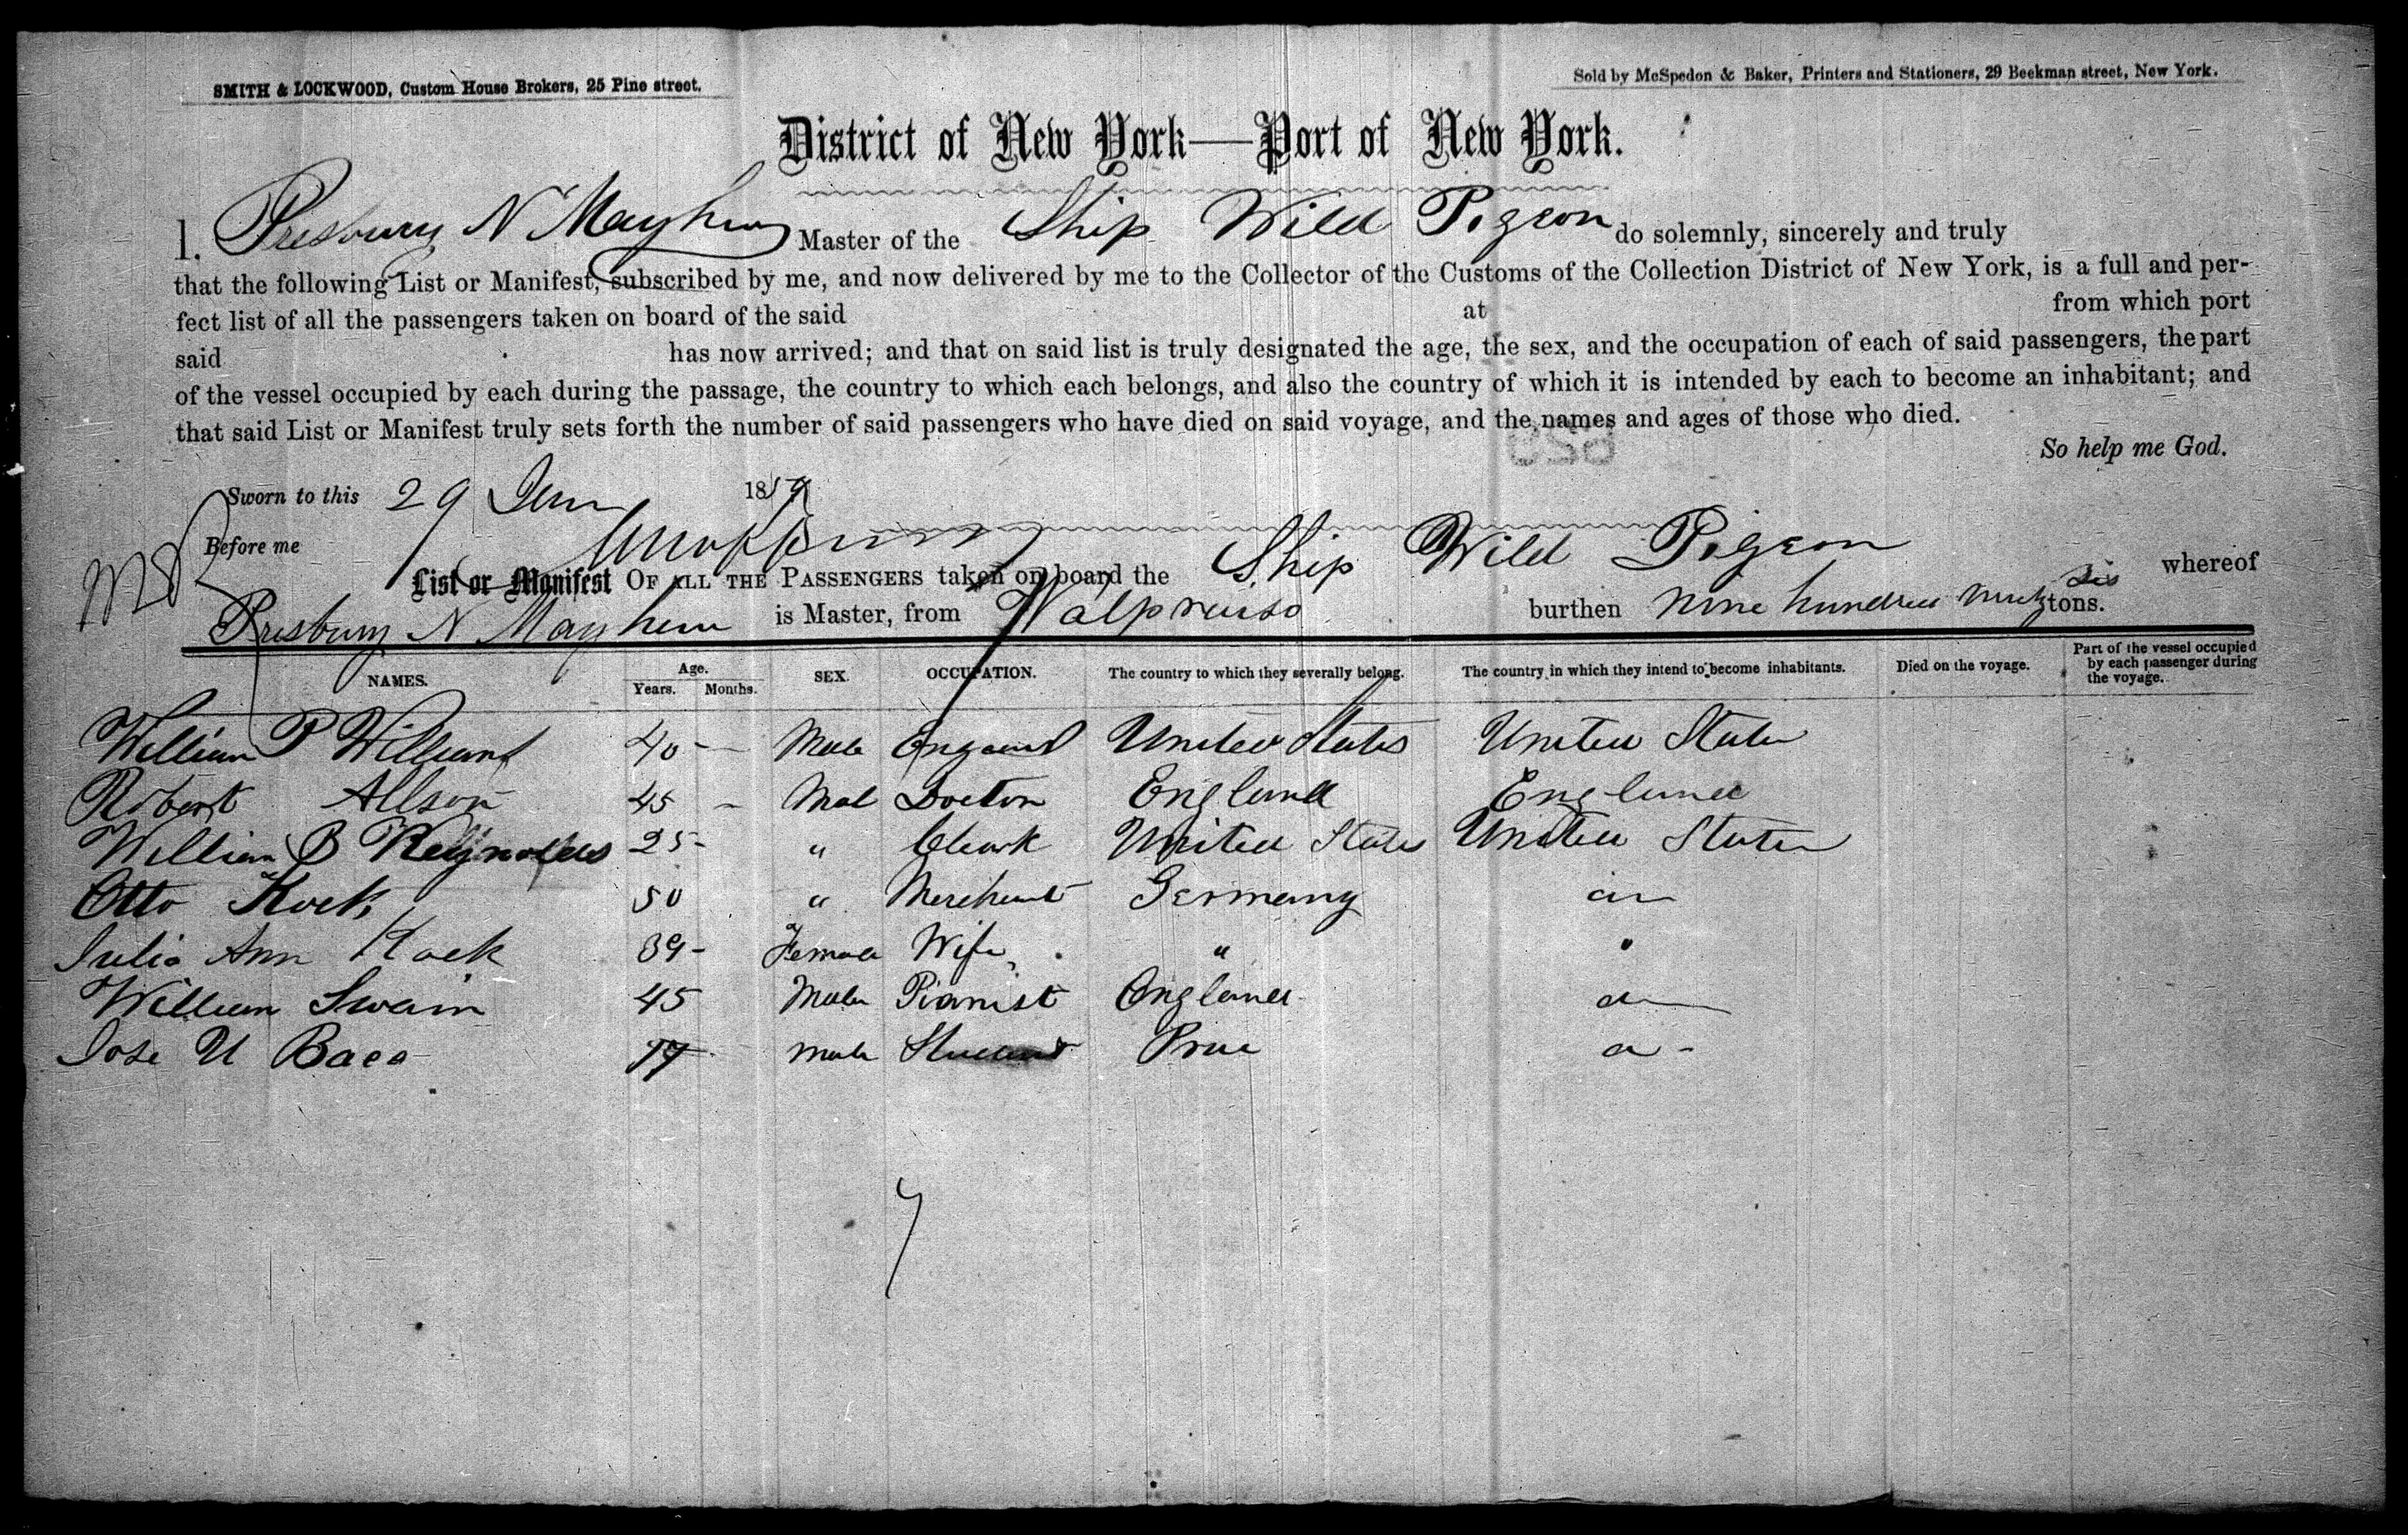 SMITH & LOCKWOOD, Custom House Brokers, 25 Pine street.
Sold by McSpedon & Baker, Printers and Stationers, 29 Beekman street, New York.
District of New York—Port of New York.
I, Presbury N Mayhew Master of the Ship Wild Pigeon do solemnly, sincerely and truly
that the following List or Manifest, subscribed by me, and now delivered by me to the Collector of the Customs of the Collection District of New York, is a full and per-
fect list of all the passengers taken on board of the said at from which port
said has now arrived; and that on said list is truly designated the age, the sex, and the occupation of each of said passengers, the part
of the vessel occupied by each during the passage, the country to which each belongs, and also the country of which it is intended by each to become an inhabitant; and
that said List or Manifest truly sets forth the number of said passengers who have died on said voyage, and the names and ages of those who died.
So help me God.
Sworn to this 29 1859
Before me
List or Manifest OF ALL THE PASSENGERS taken on board the Ship Wild Pigeon whereof
Presbury N Mayhew is Master, from Valpraiso burthen nine hundred ninty six tons.
NAMES. Age. Years. Months. SEX. OCCUPATION. The country to which they severally belong. The country in which they intend to become inhabitants. Died on the voyage. Part of the vessel occupied by each passenger during the voyage.
William P Williams 40 – Male United States United States
Robert Allson 45 – Mal Doctor England England
William B Reynolds 25 – " Clerk United States United States
Otto Kock 50 " Merchant Germany
Julia Ann Kock 39 – Female Wife " "
William Swain 45 Male Pianist England
Jose U Baca Male Student
7